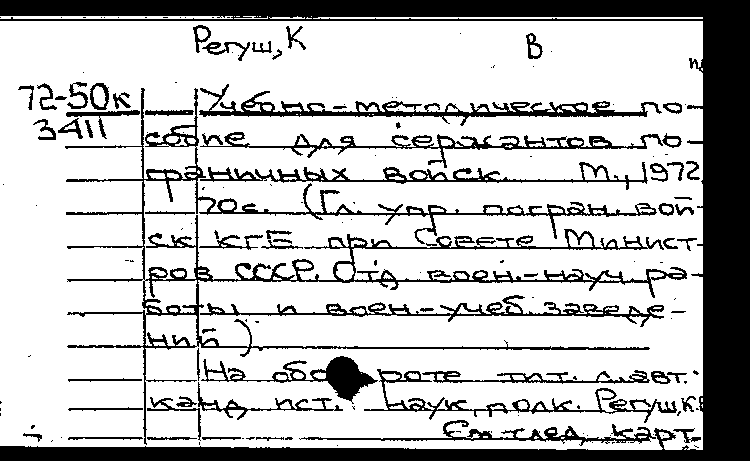 Регуш, К В
72-50к Учебно-методическое по-
3411 собие для сержантов по-
граничных войск. М., 1972.
70с. (Гл. упр. погран. вой-
ск КГБ при Совете Минист-
ров СССР. Отд воен.-науч. ра-
боты и воен.-учеб. заведе-
ний).
На обороте тит. л. авт.:
канд ист. наук, полк. Регуш, К.В
См след. карт.